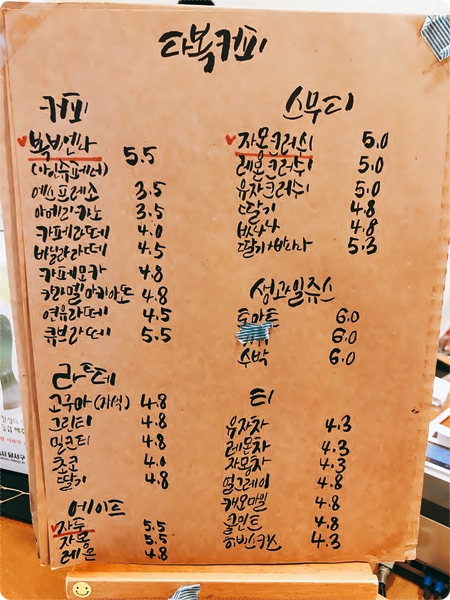 다복커피
커피
복비엔나
(아인슈페너)
5.5
에스프레소 3.5
아메리카노 3.5
카페라떼 4.0
바닐라라떼 4.5
카페모카 4.8
카라멜마키아또 4.8
연유라떼 4.5
큐브라떼 5.5
라떼
고구마(자색) 4.8
그린티 4.8
밀크티 4.8
초코 4.0
딸기 4.8
에이드
자두 5.5
자몽 5.5
레몬 4.8
스무디
자몽크러쉬 5.0
레몬크러쉬 5.0
유자크러쉬 5.0
딸기 4.8
바나나 4.8
딸기+바나나 5.3
생과일쥬스
토마토 6.0
6.0
수박 6.0
티
유자차 4.3
레몬차 4.3
자몽차 4.3
얼그레이 4.8
캐모마일 4.8
쿨민트 4.8
히비스커스 4.3